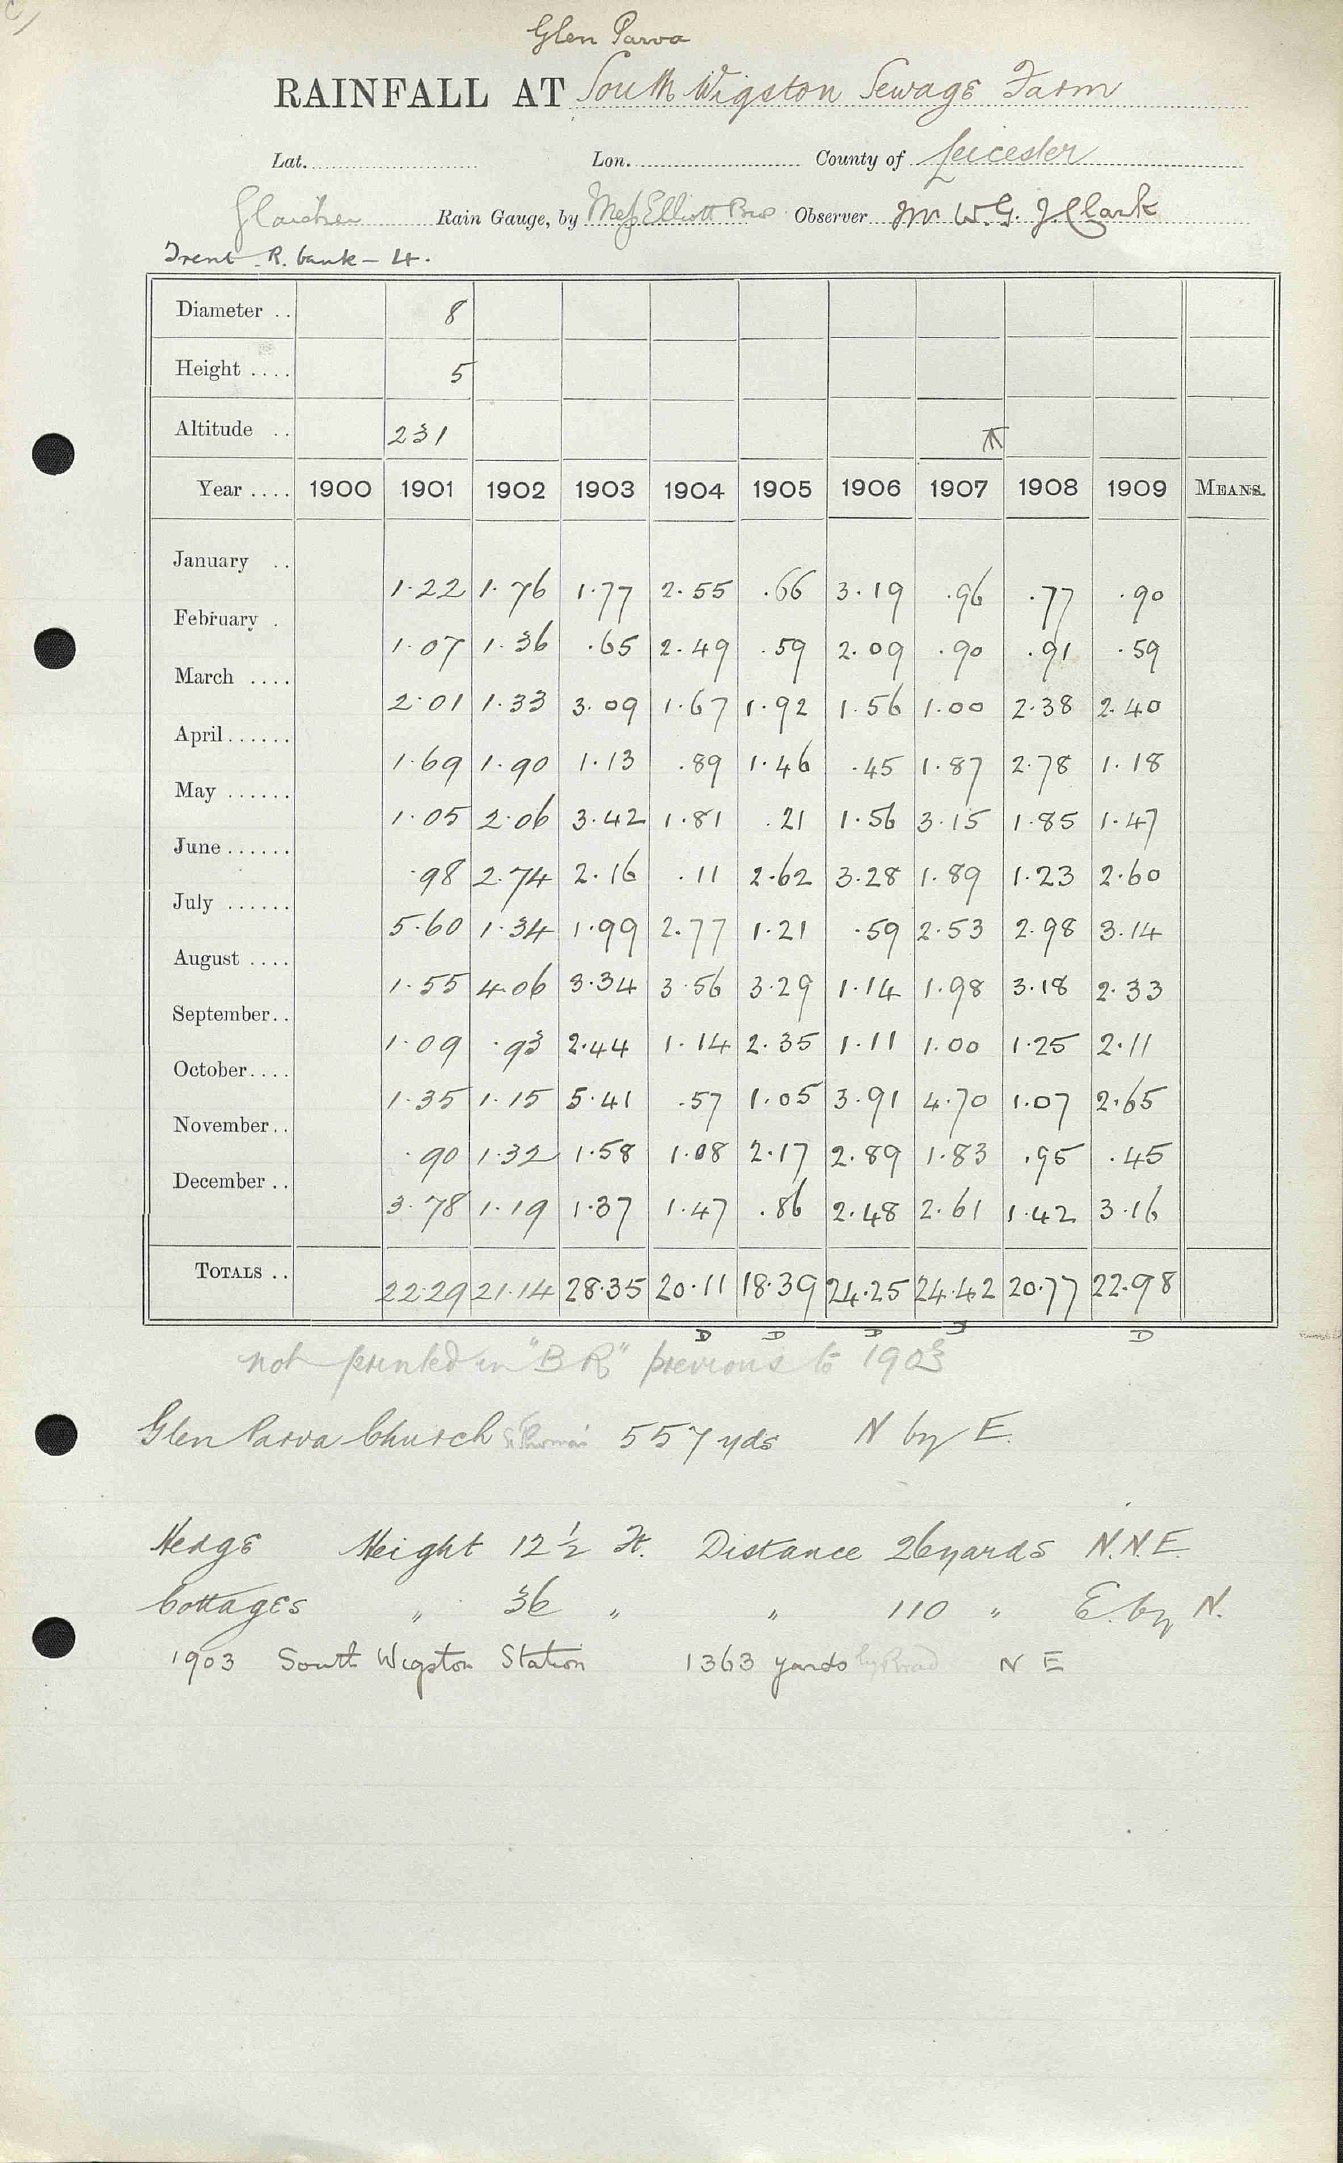 Glen Parva
RAINFALL AT South Wigston Sewage Farm
Lat. Lon. County of Leicester
Glaisher Rain Gauge, by Messrs Elliott Bros Observer Mr W. G. J. Clark
Trent R. bank - 4.
Diameter .. 8
Height .... 5
Altitude .. 231
Year .... 1900 1901 1902 1903 1904 1905 1906 1907 1908 1909 MEANS.
January .. 1.22 1.76 1.77 2.55 .66 3.19 .96 .77 .90
February . 1.07 1.36 .65 2.49 .59 2.09 .90 .91 .59
March .... 2.01 1.33 3.09 1.67 1.92 1.56 1.00 2.38 2.40
April...... 1.69 1.90 1.13 .89 1.46 .45 1.87 2.78 1.18
May ...... 1.05 2.06 3.42 1.81 .21 1.56 3.15 1.85 1.47
June ...... .98 2.74 2.16 .11 2.62 3.28 1.89 1.23 2.60
July ...... 5.60 1.34 1.99 2.77 1.21 .59 2.53 2.98 3.14
August .... 1.55 4.06 3.34 3.56 3.29 1.14 1.98 3.18 2.33
September.. 1.09 .93 2.44 1.14 2.35 1.11 1.00 1.25 2.11
October.... 1.35 1.15 5.41 .57 1.05 3.91 4.70 1.07 2.65
November.. .90 1.32 1.58 1.08 2.17 2.89 1.83 .95 .45
December .. 3.78 1.19 1.37 1.47 .86 2.48 2.61 1.42 3.16
TOTALS .. 22.29 21.14 28.35 20.11 18.39 24.25 24.42 20.77 22.98
D D D D D
not printed in "BR" previous to 1903
Glen Parva Church St Thomas 557 yds N by E.
Hedge Height 12 1/2 Ft. Distance 26 yards N.N.E.
Cottages " 36 " " 110 " E. by N.
1903 South Wigston Station 1363 yards by Road N E